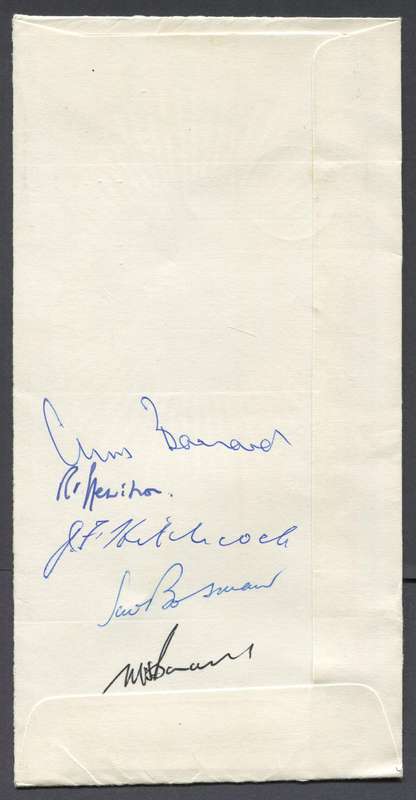 Chris Barnard
R. Hewitson.
J.F. Hitchcock
Bosman
MS Barnard